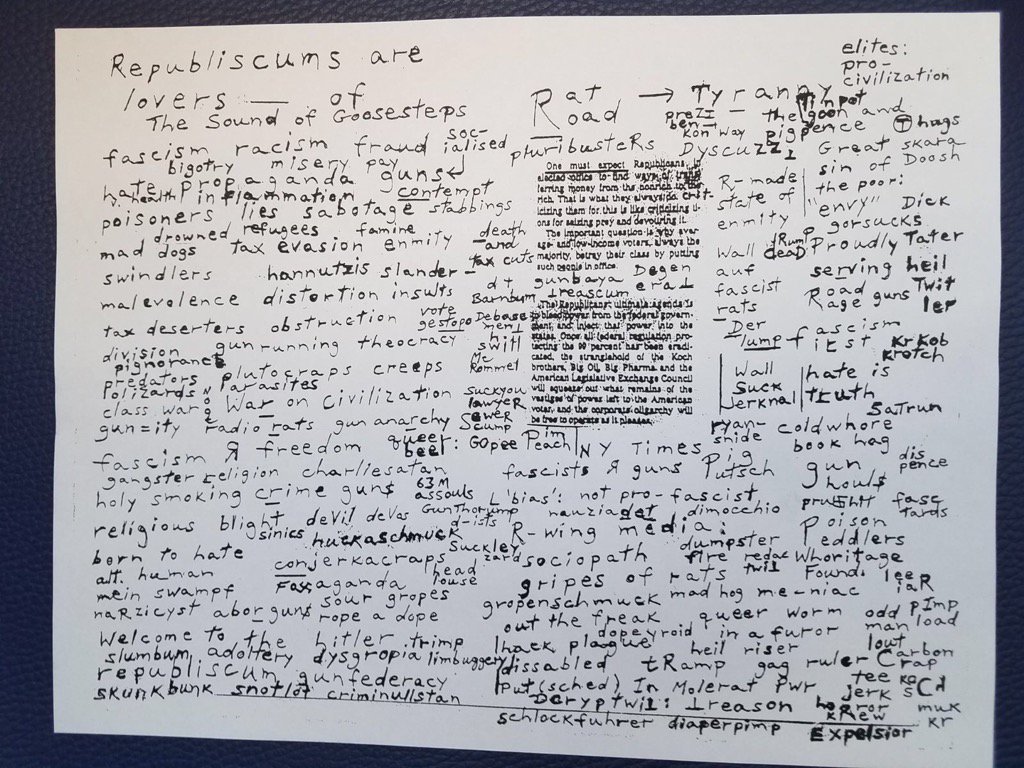 Republiscums are
lovers — of
The Sound of Goosesteps
fascism racism fraud soc-
ialised
bigotry misery pay
hate propaganda guns
health inflammation contempt
poisoners lies sabotage stabbings
drowned refugees famine
mad dogs tax evasion enmity death
and
swindlers hannutzis slander tax cuts
malevolence distortion insults
dt
Barnbum
tax deserters obstruction vote Debase
gestopo ment
division gunrunning theocracy hit
swill
pignorance
predators plutocraps creeps Mc
Rommel
Polizards Parasites
class war War on Civilization Suckyou
lawyer
gun=ity radio rats gun anarchy Sewer
Scump
fascism Я freedom queer
beef: GOpee Peach
gangster religion charliesatan
holy smoking crime guns 63M
assouls
religious blight devil devas GunThorump
sinics huckaschmuck d-ists
born to hate conjerkacraps Suckley
zard
alt. human Foxaganda head
louse
mein swampf sour gropes
narzicyst aborguns rope a dope
Welcome to the hitler trimp
slumbum adoltery dysgropia limbuggery
republiscum gunfederacy
skunkbunk snotlot criminullstan
Rat → Tyranny
Road
prezz
ben
kon way
the goon and
Tinpot
pigpence
pluribusters Dyscuzzi
elites:
pro-
civilization
Thags
Great skara
sin of Doosh
One must expect Republicans in
elected office to find ways of trans-
ferring money from the nonrich to the
rich. That is what they always do. Crit-
icizing them for this is like criticizing li-
ons for seizing prey and devouring it.
The important question is why aver-
age- and low-income voters, always the
majority, betray their class by putting
such people in office.
gunbaya Degen
treascum erat
The Republicans' ultimate agenda is
to bleed power from the federal govern-
ment, and inject that power into the
states. Once all federal regulation pro-
tecting the 99 percent has been eradi-
cated, the stranglehold of the Koch
brothers, Big Oil, Big Pharma and the
American Legislative Exchange Council
will squeeze out what remains of the
vestiges of power left to the American
voter, and the corporate oligarchy will
be free to operate as it pleases.
R-made
state of
enmity
the poor:
"envy" Dick
gorsucks
Wall dRump Proudly Tater
dead
auf serving heil
fascist Road Twit
rats Rage guns ler
Der fascism
Tump first Kr Kob
krotch
Wall hate is
Suck
Jerknal truth
SaTrun
ryan- coldwhore
snide book hag
Pim NY Times Pig
fascists Я guns Putsch gun dis
ghouls pence
L 'bias': not pro-fascist
nauziadet dimocchio fasc
tards
R-wing media: Poison
dumpster Peddlers
sociopath fire redac Whoritage
twit
gripes of rats Found. lee
iaR
gropenschmuck mad hog me-niac
out the freak queer worm odd pImp
man load
dopeyroid in a furor
hack plague heil riser lout
carbon
dissabled tRamp gag ruler Crap
tee
Put(sched) In Molerat Pwr jerk
Decryptwit: Treason horror muk
kRew kr
schlockfuhrer diaperpimp Expelsior